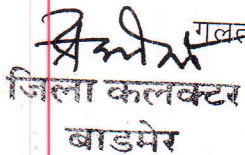 गलत
जिला कलक्टर
बाडमेर